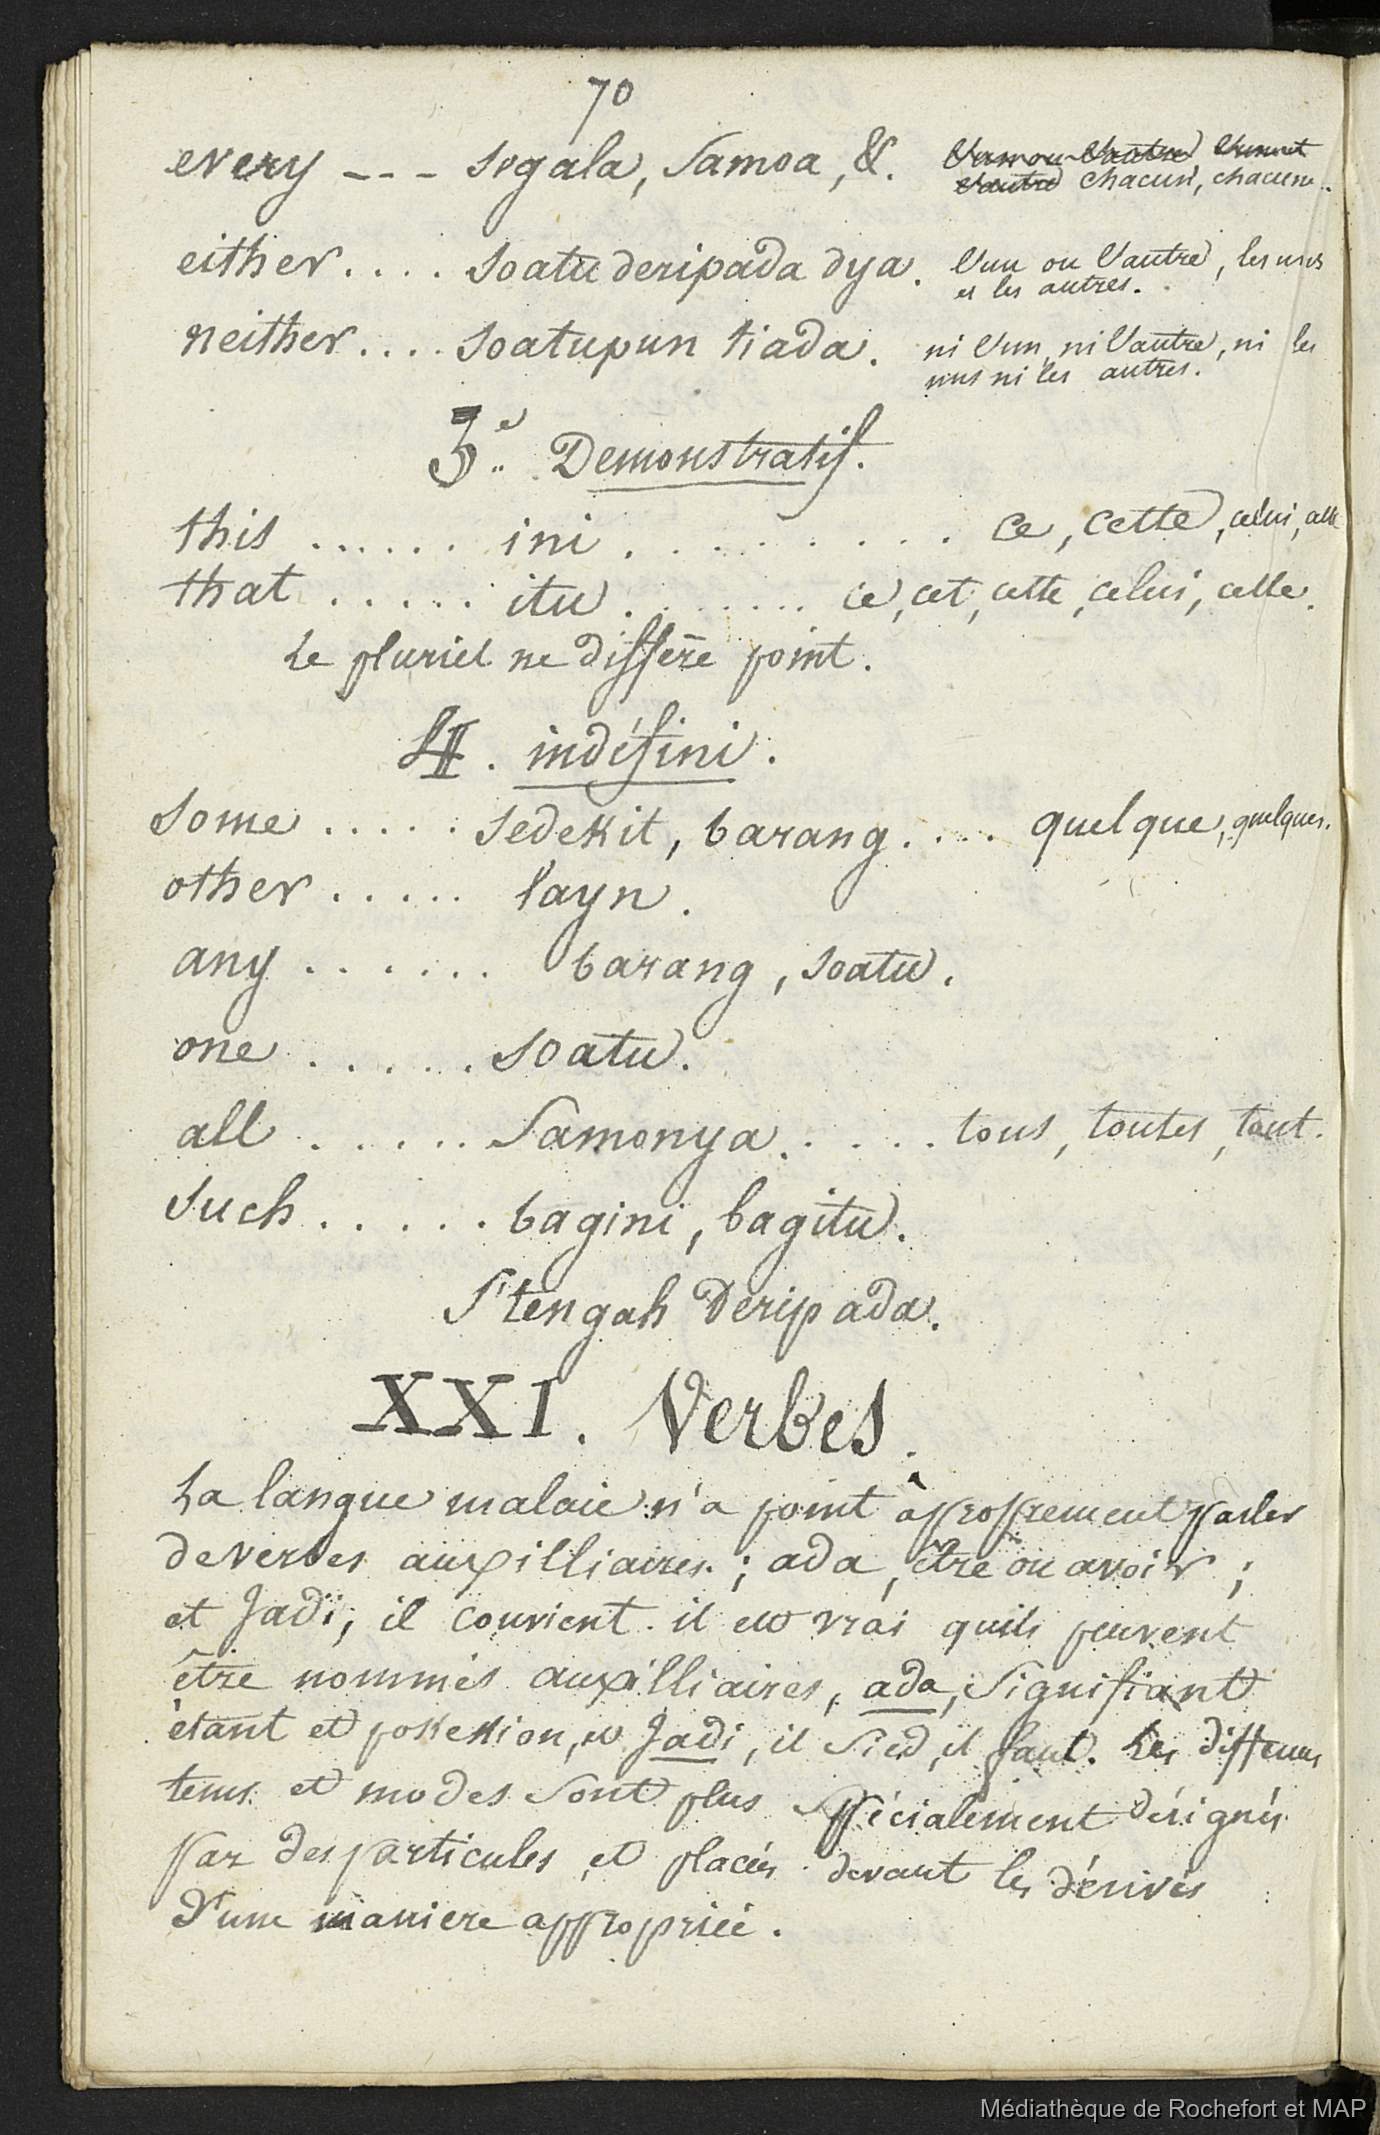 70
every --- sogala, samoa, &. l'un ou l'autre l'un et
l'autre chacun, chacune.
either .... soatu deripada dya. l'un ou l'autre, les uns
et les autres.
neither .... soatupun tiada. ni l'un, ni l'autre, ni les
uns ni les autres.
3e. Demonstratif.
this ...... ini ......... ce, cette, celui, celle
that ..... itu ........ ce, cet, cette, celui, celle.
Le pluriel ne diffère point.
4. indéfini.
some ..... sedekit, barang .... quelque, quelques.
other ..... layn.
any ...... barang, soatu.
one ...... soatu.
all ...... samonya ..... tous, toutes, tout.
such ..... bagini, bagitu.
s'tengah deripada.
XXI. Verbes.
La langue malaie n'a point à proprement parler
de verbes auxilliaires; ada, être ou avoir;
et Jadi, il convient. il est vrai quils peuvent
être nommés auxilliaires, ada, signifiant
étant et possession, et Jadi, il sied, il faut. Les differens
tems et modes sont plus spécialement désignés
par des particules, et placées devant les dérivés
d'une maniere appropriée.
Médiathèque de Rochefort et MAP